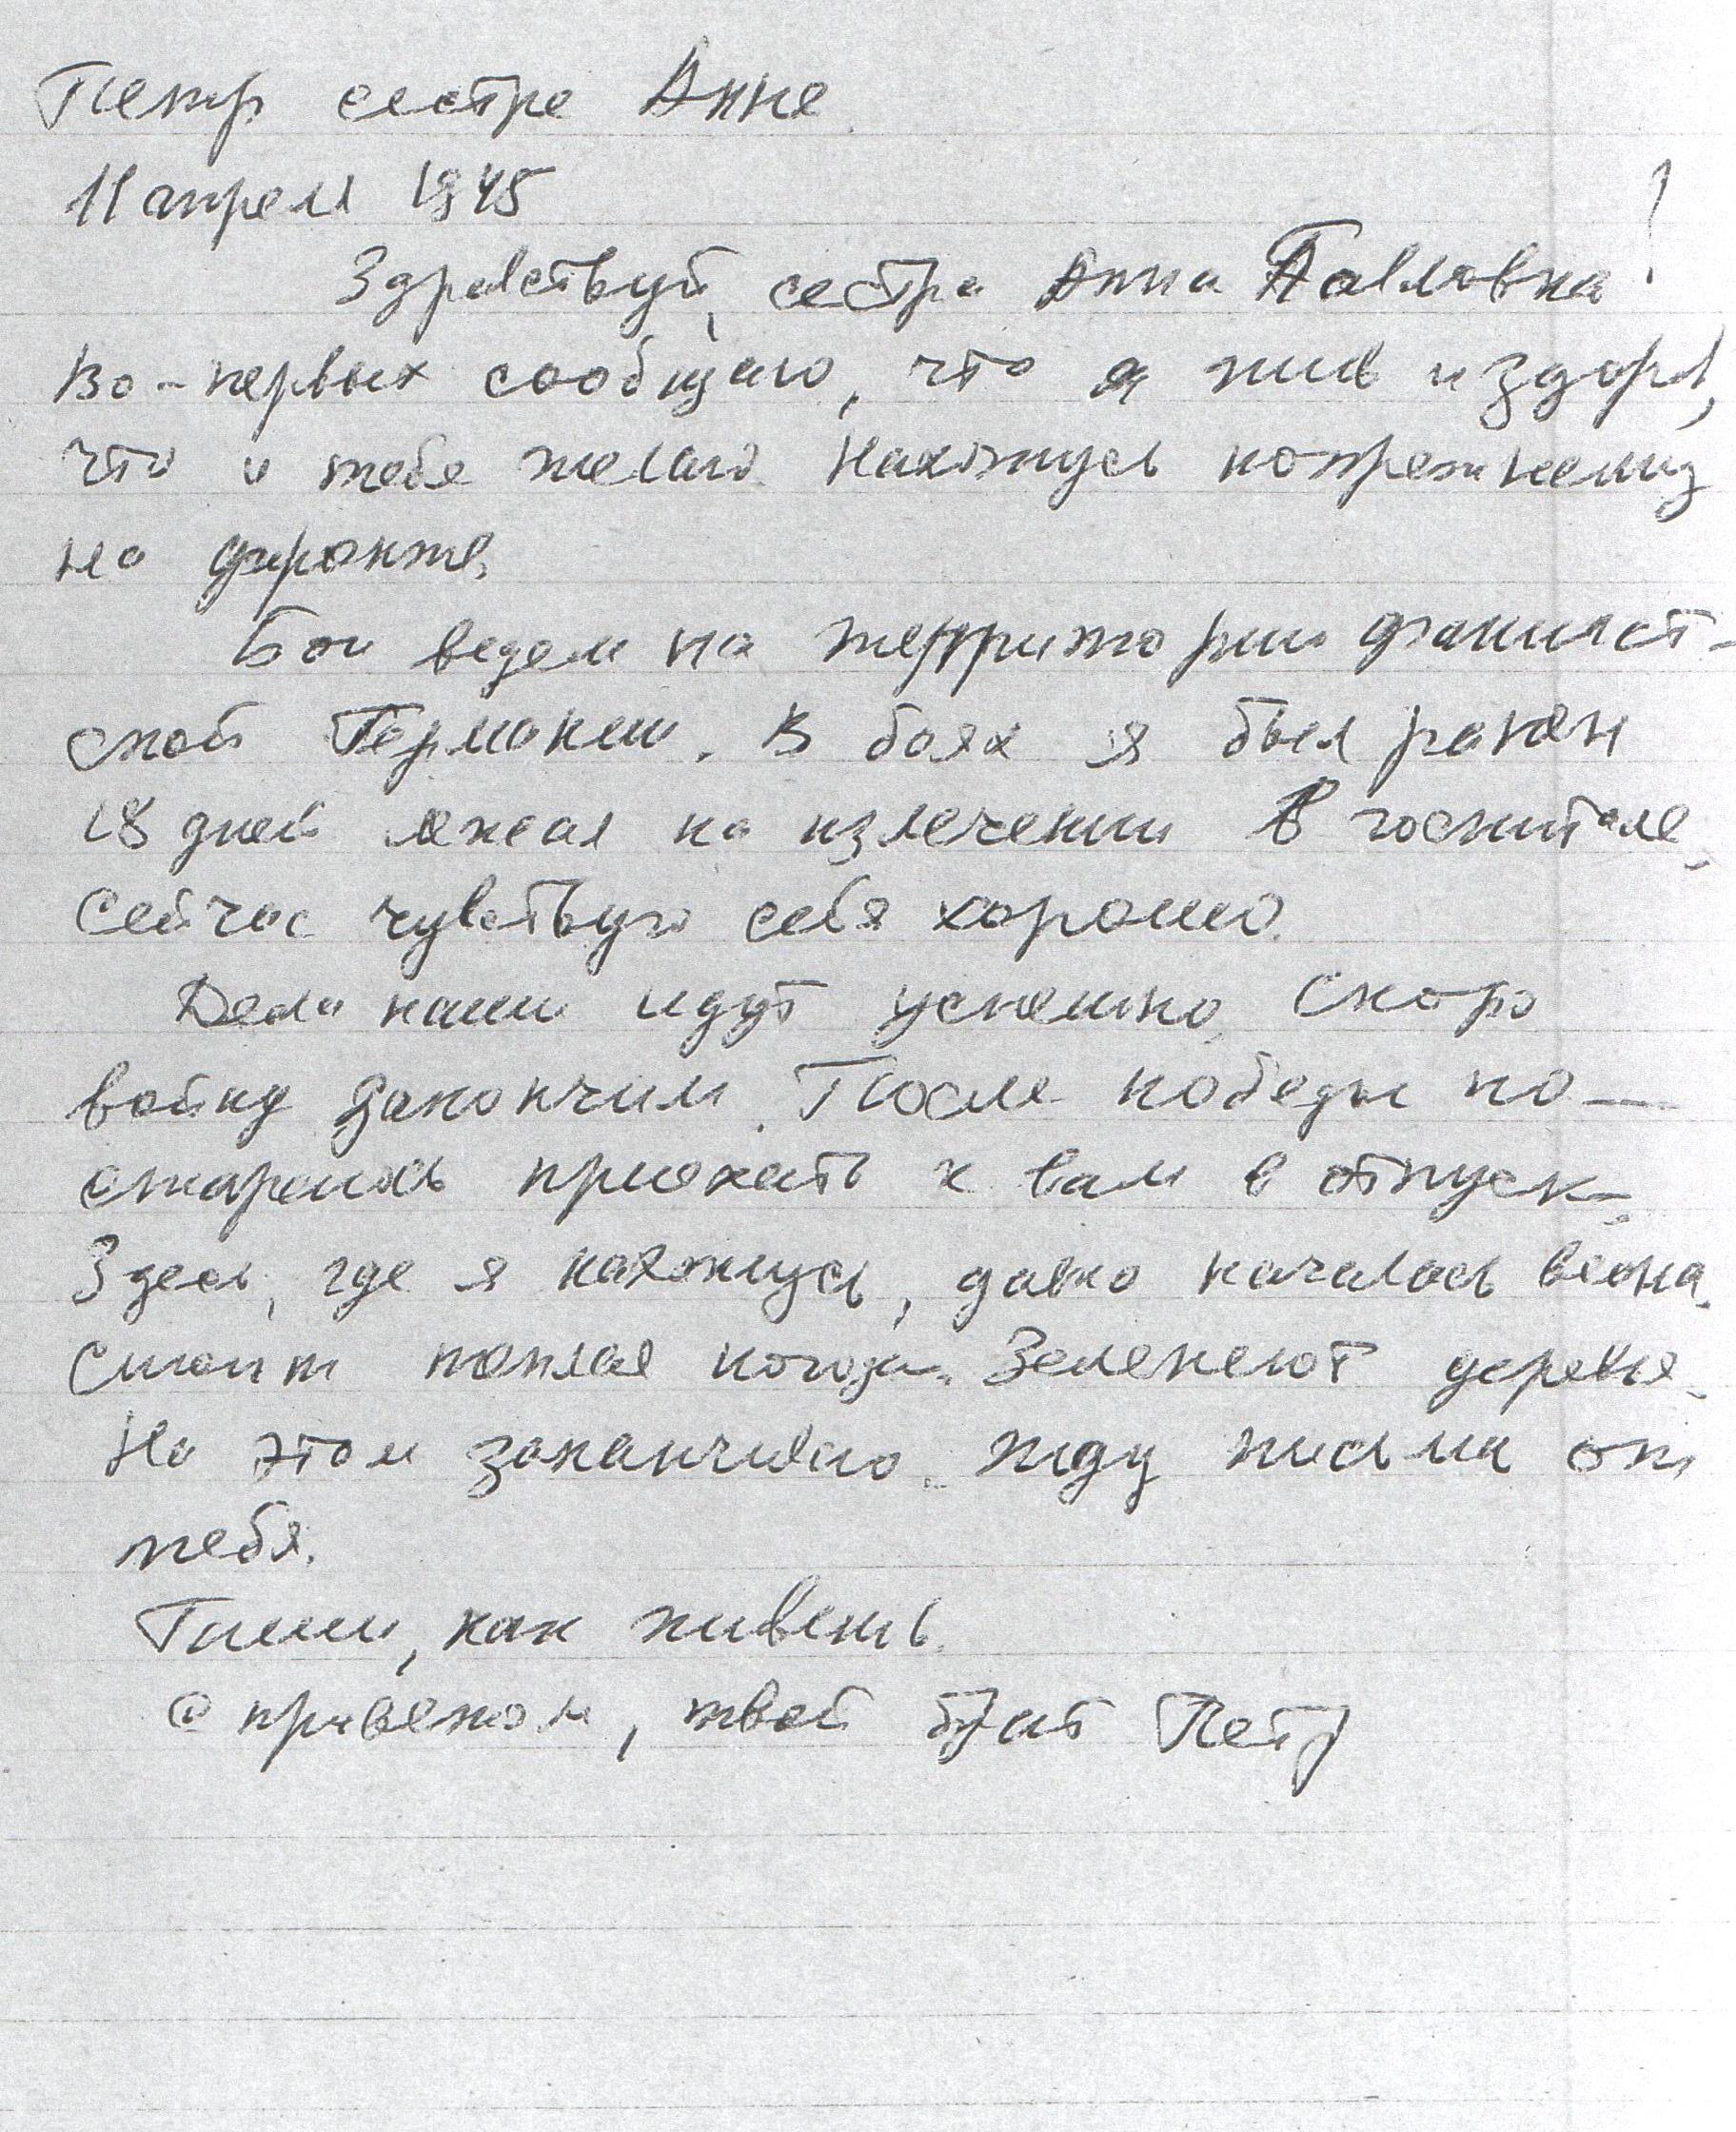 Петр сестре Анне.
11 апреля 1945
Здравствуй, сестра Анна Павловна!
Во-первых сообщаю, что я жив и здоров,
что и тебе желаю. Нахожусь попрежнему
на фронте.
Бои ведем на территории фашист-
ской Германии. В боях я был ранен
18 дней лежал на излечении в госпитале.
Сейчас чувствую себя хорошо.
Дела наши идут успешно. Скоро
войну закончим. После победы по-
стараюсь приехать к вам в отпуск.
Здесь, где я нахожусь, давно началась весна.
Стоит теплая погода. Зеленеют деревья.
На этом заканчиваю. Жду письма от
тебя.
Пиши, как живешь.
С приветом, твой брат Петр